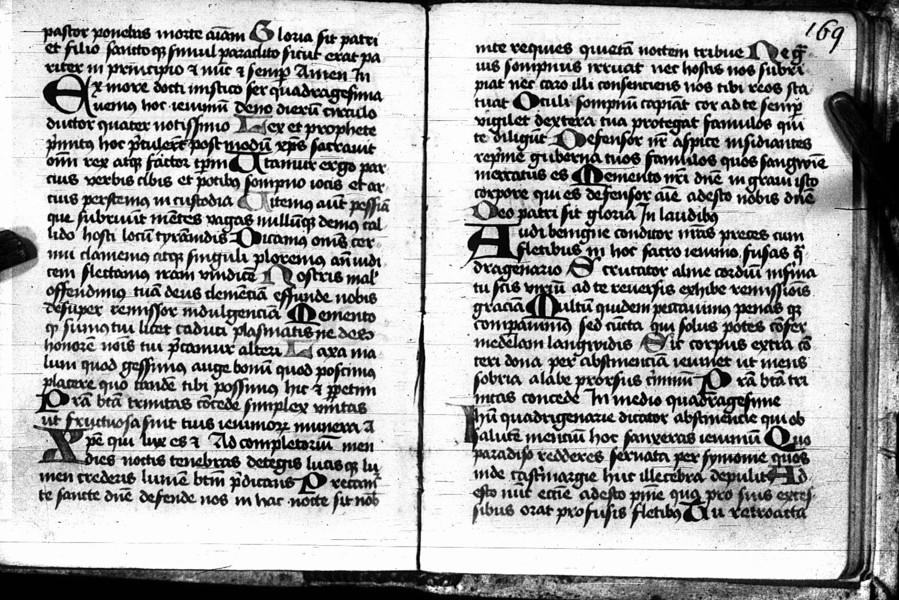 pastor ponebas morte aīam Gloria sit patri
et filio sanctoqꝫ simul paraclito sicut erat pa
riter in principio ⁊ nūc ⁊ semꝑ Amen In
Ex more docti mistico ser quadragesima
uemus hoc ieiuniū deno dierū circulo
ductor quater notissimo Lex et prophete
pͥmitus hoc ꝓtulerūt post modū xp̄s sacravit
om̄i rex atqꝫ factor tp̄m Utamur ergo par
cius verbis cibis et potibꝫ sompno iocis et ar
cius perstemus in custodia Uitemo aūt pessīa
que subruunt mētes vagas nullūqꝫ demus cal
lido hosti locū tyrannidis Dicamus om̄s cer
nui clamemus atqꝫ singuli ploremus an̄ iudi
cem flectamus iram vindicē Nostris mal̓
offendimus tuā deus clemēciā effunde nobis
desuper remissor indulgenciā Memento
qꝫ sumus tui licet caduci plasmatis ne des
honorē nōis tui p̄camur alteri Laxa ma
lum quod gessimus auge bonū quod poscimus
placere quo tandē tibi possimus hic ⁊ ꝑpetim
Pr̄a btā trinitas cōcede simplex unitas
ut fructuosa sint tuis ieiunioꝝ munera A
Xp̄e qui lux es ⁊ Ad completoriū men
dies noctis tenebras detegis lucisqꝫ lu
men crederis lumē btm̄ p̄dicans Precam̄
te sancte dn̄e defende nos in hac nocte sit nob̄
169
inte requies quietā noctem tribue Ne gͣ
uis sompnus irruat nec hostis nos subri
piat nec caro illi consenciens nos tibi reos sta
tuat Oculi sompnū capiāt cor ad te semꝑ
vigilet dextera tua protegat famulos qui
te diligūt Defensor nr̄ aspice insidiantes
reprime guberna tuos famulos quos sangwine
mercatus es Memento nr̄i dn̄e in gravi isto
corpore qui es defensor aīe adesto nobis dn̄e
Deo patri sit gloria In laudibꝫ
Audi benigne conditor nr̄as preces cum
fletibus in hoc sacro ieiunio fusas qͣ
dragenario Scrutator alme cordiū infirma
tu scis viriū ad te reversis exhibe remissiōis
graciā Multū quidem peccavimus penas qꝫ
comparavimus sed cūcta qui solus potes cōfer
medelam langwidis Sic corpus extra cō
teri dona per abstinenciā ieiunet ut mens
sobria a labe prorsus criminū Pr̄a btā tri
nitas concede In medio quadragesime
Ihū quadragenarie dicator abstinēcie qui ob
salutē mentiū hoc sanxeras ieiuniū Quo
paradiso redderes servata per symonie quos
inde castrimargie huc illecebra depulit Ad
esto nūc ecc̄ie adesto pn̄ie qua pro suis exces
sibus orat profusis fletibꝫ Tu retroacta